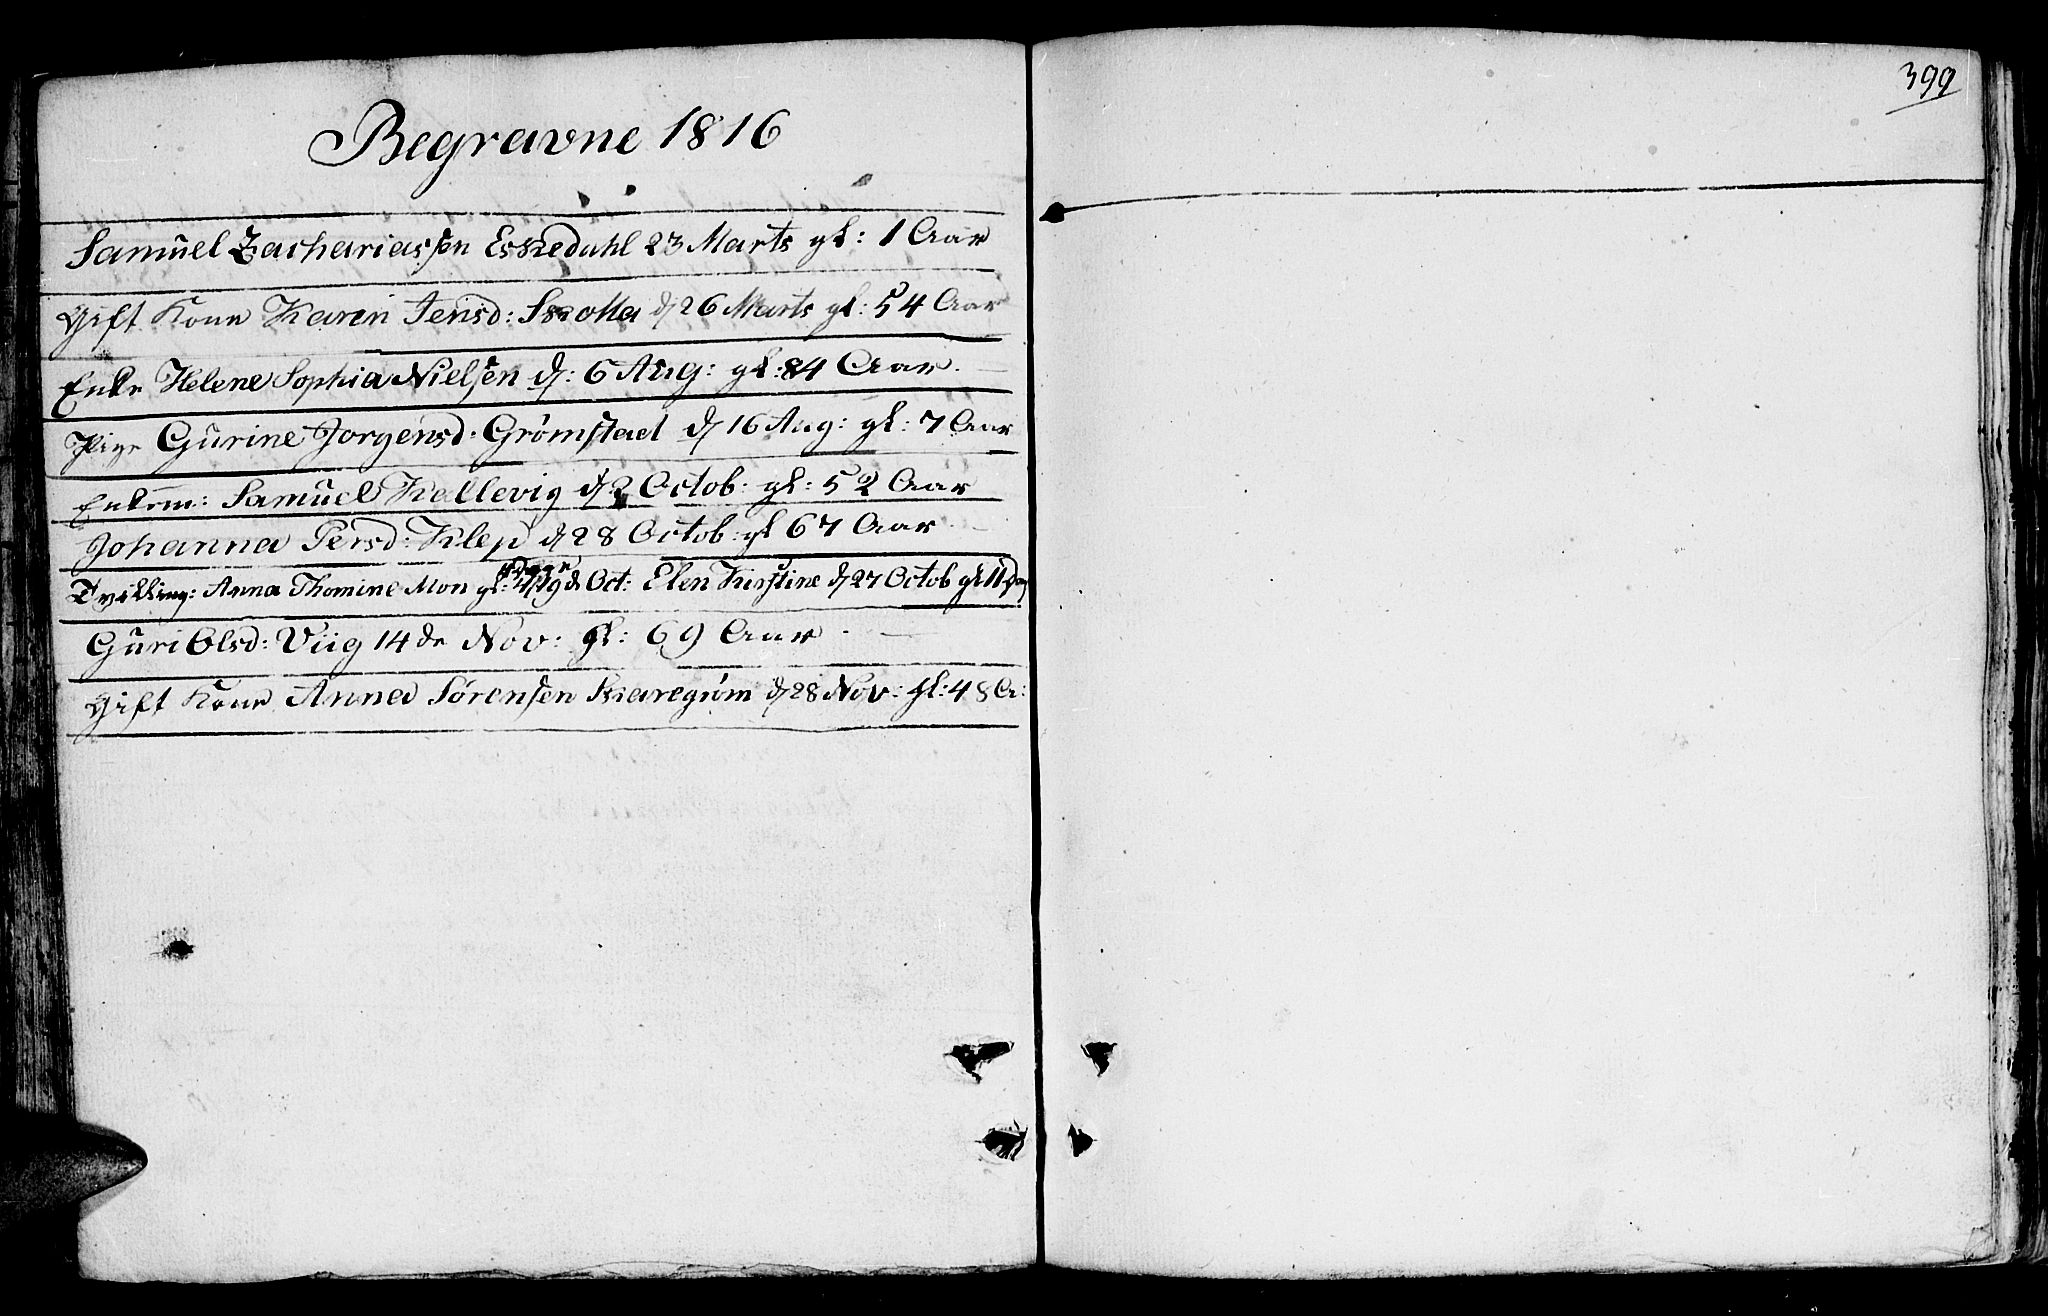 Begravne 1816
399
Samuel Zachariassøn Eskedahl 23 Marts gl: 1 Aar
Gift Kone Karen Jensd: Skolla d 26 Marts gl: 54 Aar
Enke Helene Sophia Nielsen d: 6 Aug: gl: 84 Aar.
Pige Gurine Jorgensd: Grømstad d 16 Aug: gl: 7 Aar
Enkem: Samuel Kallevig d 2 Octob: gl: 52 Aar
Johanna Persd: Klep d 28 Octob: gl 67 Aar
Tvilling: Anna Thomine Mon gl: Dage 19de Oct: Elen Kirstine d 27 Octob gl 11 Dag
Guri Olsd: Viig 14de Nov: gl: 69 Aar
Gift Kone Anna Sørensen d 28 Nov: gl: 48 A: